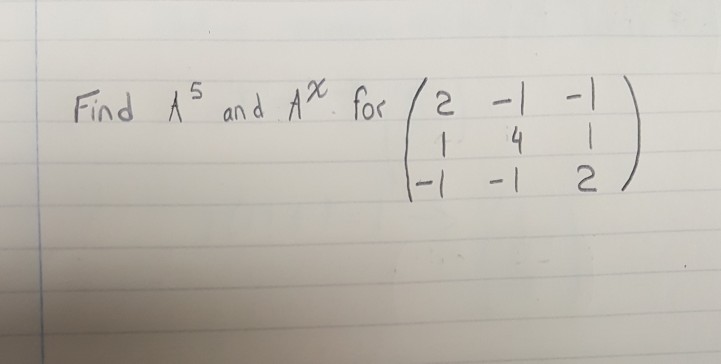 Find A⁵ and Aˣ for (2 -1 -1
1 4 1
-1 -1 2)